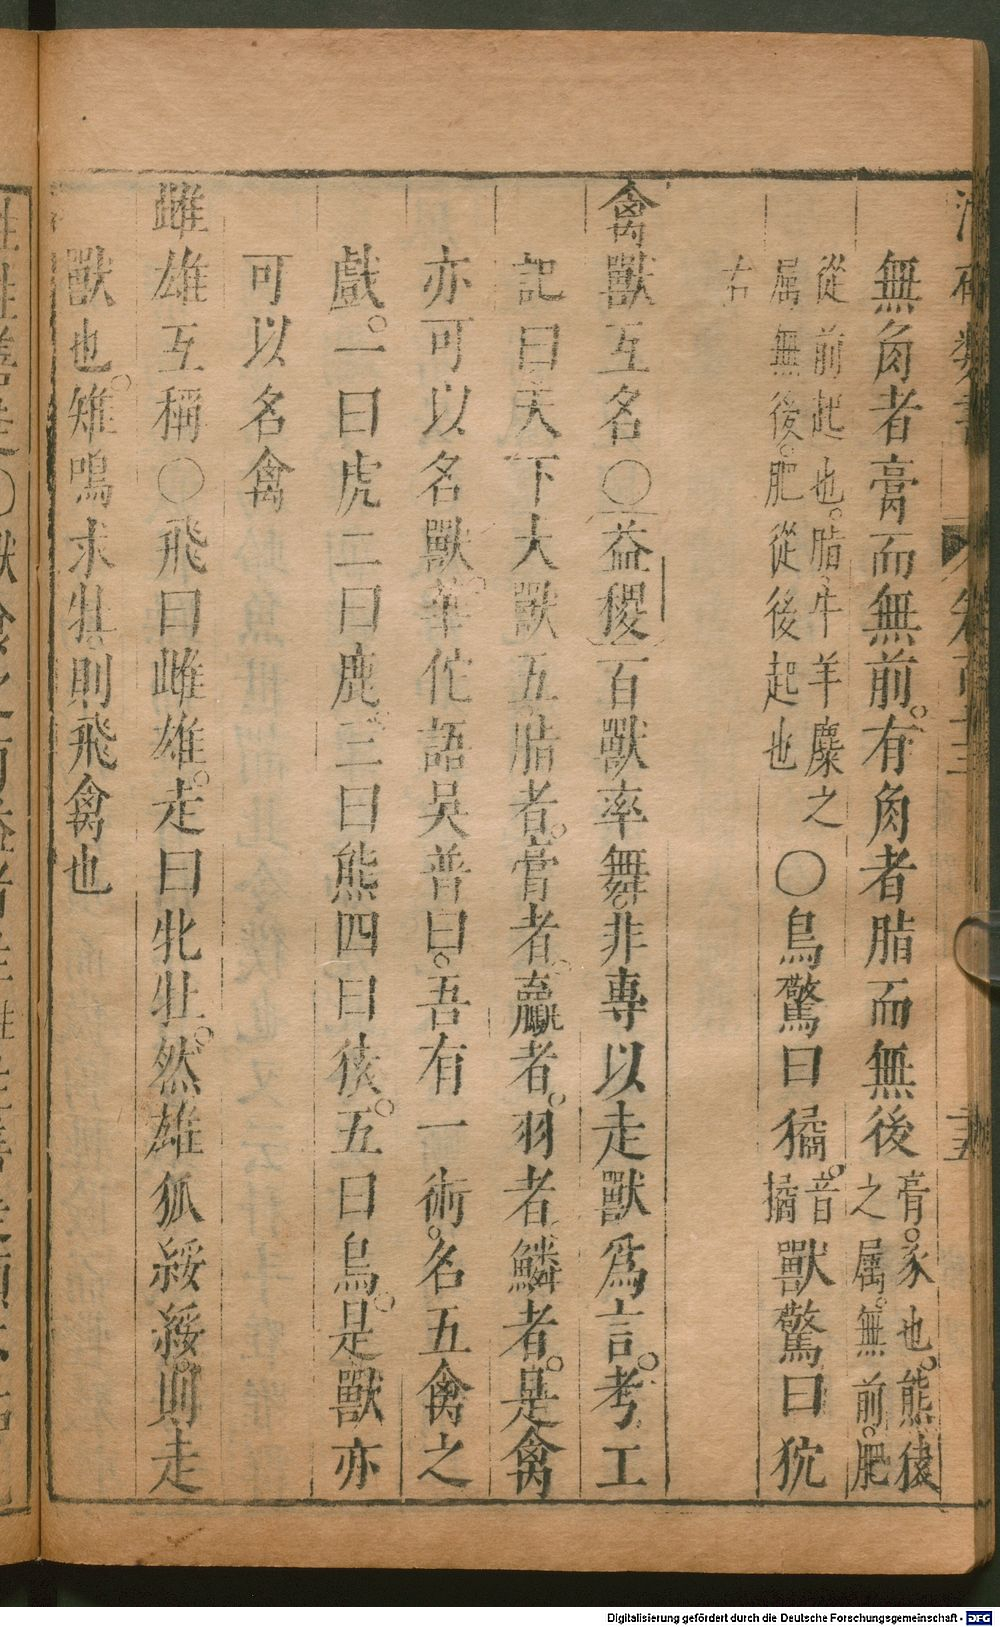 無角者膏而無前。有角者脂而無後膏。豕也。熊猿之属。無前。肥
從前起也。脂。牛羊麋之属無後。肥從後起也〇鳥驚曰獝。音獝獸驚曰狘
右
禽獸互名〇益稷百獸率舞。非專以走獸爲言。考工
記曰天下大獸五脂者。膏者。臝者。羽者鱗者。是禽
亦可以名獸。華佗語吳普曰。吾有一術。名五禽之
戲。一曰虎二曰鹿三曰熊四曰猿。五曰鳥。是獸亦
可以名禽
雌雄互稱〇飛曰雌雄。走曰牝牡。然雄狐綏綏。則走
獸也。雉鳴求牡則飛禽也
Digitalisierung gefördert durch die Deutsche Forschungsgemeinschaft - DFG